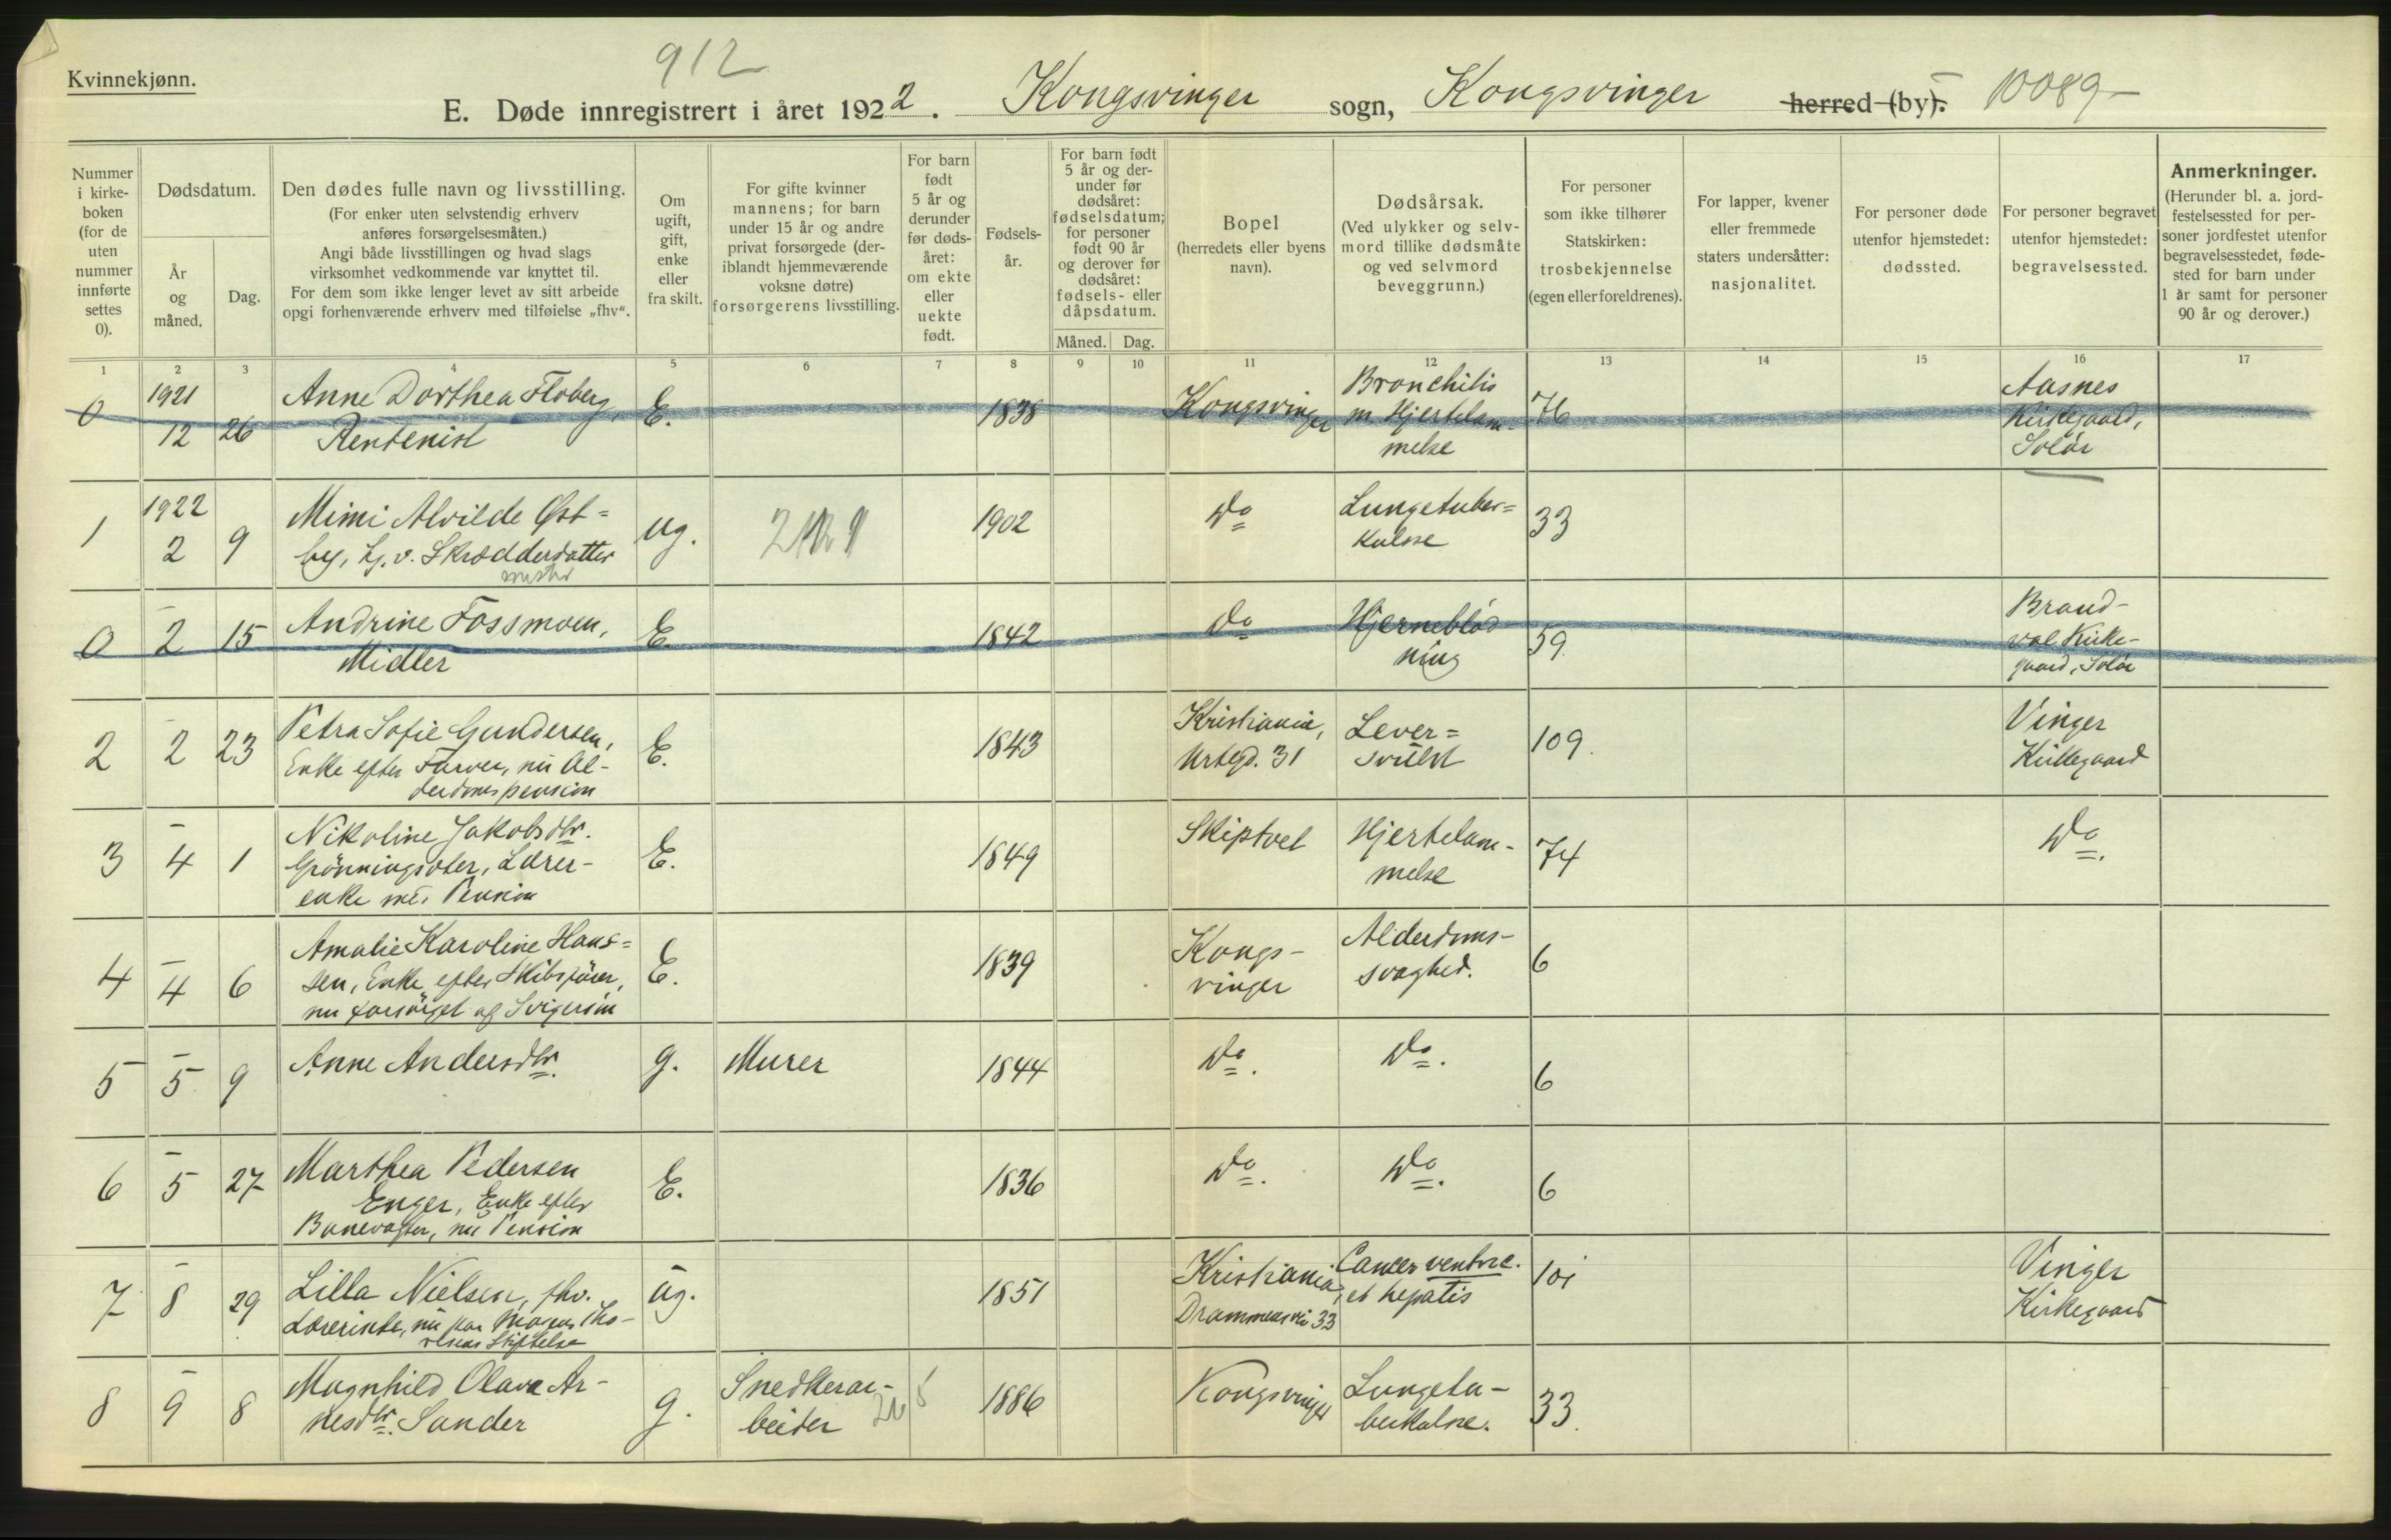 Kvinnekjønn.
912
E. Døde innregistrert i året 1922. Kongsvinger sogn, Kongsvinger herred (by). 10089-
Nummer i kirke-boken (for de uten nummer innførte settes 0).
Dødsdatum.
År og måned.
Dag.
Den dødes fulle navn og livsstilling.
(For enker uten selvstendig erhverv
anføres forsørgelsesmåten.)
Angi både livsstillingen og hvad slags
virksomhet vedkommende var knyttet til.
For dem som ikke lenger levet av sitt arbeide
opgi forhenværende erhverv med tilføielse „fhv“.
Om
ugift,
gift,
enke
eller
fra skilt.
For gifte kvinner
mannens; for barn
under 15 år og andre
privat forsørgede (der-
iblandt hjemmeværende
voksne døtre)
forsørgerens livsstilling.
For barn
født
5 år og
derunder
før døds-
året:
om ekte
eller
uekte
født.
Fødsels-
år.
For barn født
5 år og der-
under før
dødsåret:
fødselsdatum;
for personer
født 90 år
og derover før
dødsåret:
fødsels- eller
dåpsdatum.
Måned. Dag.
Bopel
(herredets eller byens
navn).
Dødsårsak.
(Ved ulykker og selv-
mord tillike dødsmåte
og ved selvmord
beveggrunn.)
For personer
som ikke tilhører
Statskirken:
trosbekjennelse
(egen eller foreldrenes).
For lapper, kvener
eller fremmede
staters undersåtter:
nasjonalitet.
For personer døde
utenfor hjemstedet:
dødssted.
For personer begravet
utenfor hjemstedet:
begravelsessted.
Anmerkninger.
(Herunder bl. a. jord-
festelsessted for per-
soner jordfestet utenfor
begravelsesstedet, føde-
sted for barn under
1 år samt for personer
90 år og derover.)
1 2 3 4 5 6 7 8 9 10 11 12 13 14 15 16 17
0 1921 12 26 Anne Dorthea Floberg, Rentenist E. 1838 Kongsvinger Bronchitis m. Hjertelam-melse 76 Aasnes Kirkegaard, Solør
1 1922 2 9 Mimi Alvilde Øst=by, Hj. v. Skrædderdatter ug. 1902 Do Lungetuber=kulose 33
0 - 2 15 Andrine Fossmoen, Midler E. 1842 Do Hjerneblødning 59 Brand-val Kirke-gaard, Solør
2 - 2 23 Petra Sofie Gundersen, Enke efter Farver, nu Al-derdomspension E. 1843 Kristiania, Urtegd. 31 Lever=svulst 109. Vinger Kirkegaard
3 - 4 1 Nikoline Jakobsdtr. Lærer-enke Pension E. 1849 Skiptvet Hjertelam-melse 74 Do.
4 - 4 6 Amalie Karoline Hans=sen, Enke efter Skibsfører, nu forsørget af Svigersøn E. 1839 Kongs-vinger Alderdoms-svaghed. 6
5 - 5 9 Anne Andersdtr. g. Murer 1844 Do. Do. 6
6 - 5 27 Marthea Pedersen Enger, Enke efter Banevogter, nu Pension E. 1836 Do. Do. 6
7 - 8 29 Lilla Nielsen, fhv. Lærerinde, nu Stiftelse ug. 1851 Kristiania, Drammensvei 33 Cancer ventric. et hepatis 101 Vinger Kirkegaard
8 - 9 8 Magnhild Olava Ar-nesdtr. Sander g. Snedkerar-beider 1886 Kongsvinger Lungetu-berkulose. 33.